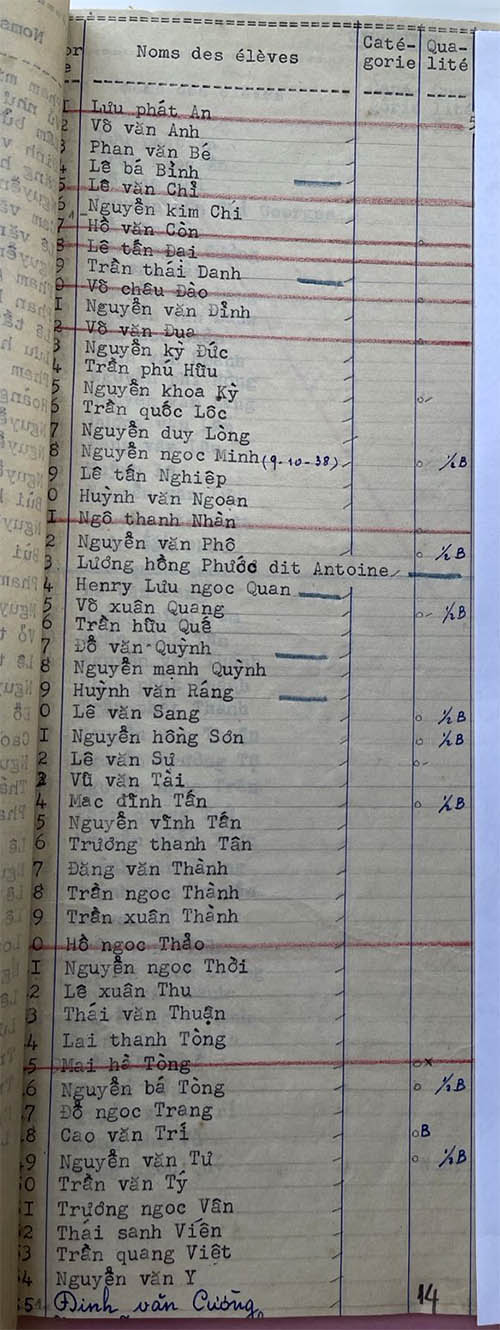 Noms des élèves Caté- Qua-
gorie lité
I Lưu phát An
2 Võ văn Anh
3 Phan văn Bé
4 Lê bá Bình
5 Lê văn Chỉ
6 Nguyễn kim Chi
7 Hồ văn Còn
8 Lê tấn Đai
9 Trần thái Danh
0 Võ châu Đào
I Nguyễn văn Đỉnh
2 Võ văn Đua
3 Nguyễn kỳ Đức
4 Trần phú Hữu
5 Nguyễn khoa Kỳ
6 Trần quốc Lôc
7 Nguyễn duy Lòng
8 Nguyễn ngoc Minh (9-10-38) ½B
9 Lê tấn Nghiêp
0 Huỳnh văn Ngoan
I Ngô thanh Nhàn
2 Nguyễn văn Phô ½B
3 Lương hồng Phước dit Antoine
4 Henry Lưu ngoc Quan
5 Võ xuân Quang ½B
6 Trần hữu Quế
7 Đỗ văn Quỳnh
8 Nguyễn manh Quỳnh
9 Huỳnh văn Ráng
0 Lê văn Sang ½B
I Nguyễn hồng Sơn ½B
2 Lê văn Sư
3 Vũ văn Tài
4 Mac đĩnh Tấn ½B
5 Nguyễn vĩnh Tấn
6 Trương thanh Tân
7 Đăng văn Thành
8 Trần ngoc Thành
9 Trần xuân Thành
0 Hồ ngoc Thảo
I Nguyễn ngoc Thời
2 Lê xuân Thu
3 Thái văn Thuận
4 Lai thanh Tòng
5 Mai hà Tòng x
6 Nguyễn bá Tòng ½B
7 Đỗ ngoc Trang
8 Cao văn Trí B
9 Nguyễn văn Tư ½B
0 Trần văn Tý
I Trương ngoc Vân
2 Thái sanh Viên
3 Trần quang Việt
4 Nguyễn văn Y
55 Đinh văn Cường 14